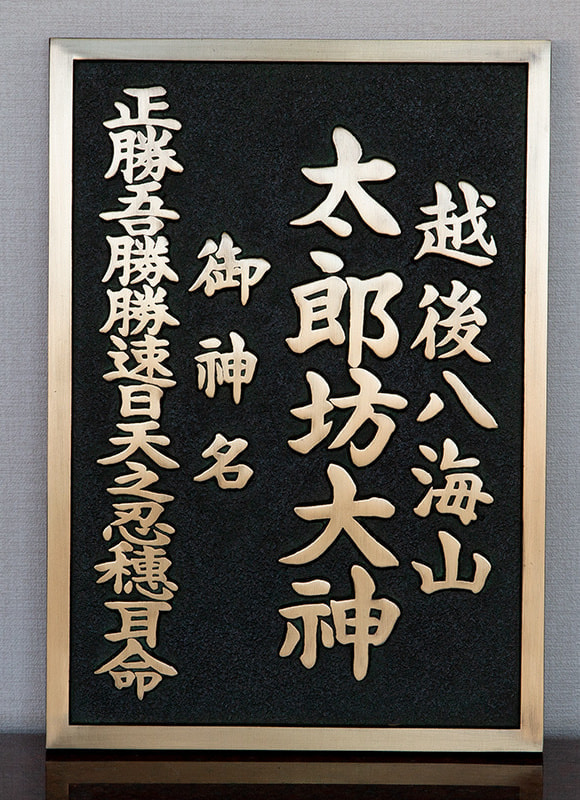 越後八海山
太郎坊大神
御神名
正勝吾勝勝速日天之忍穗耳命